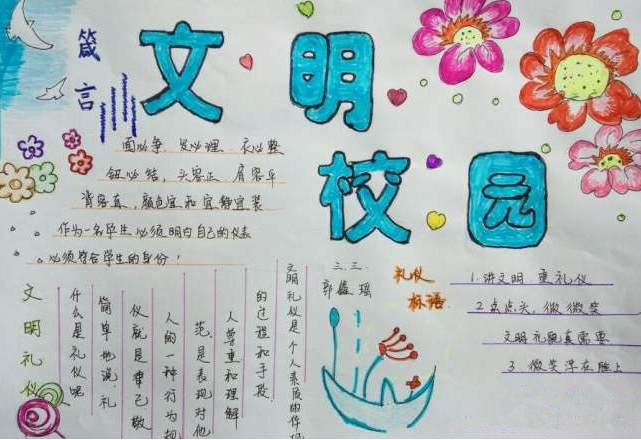 文明
校园
箴言
面必争 发必理 衣必整
钮必结，头容正 肩容平
背容直，颜色宜和宜静宜装
作为一名学生必须明白自己的仪表
必须符合学生的身份！
文明礼仪
什么是礼仪呢
简单地说，礼
仪就是律己敬
人的一种行为规
范，是表现对他
人尊重和理解
的过程和手段
文明礼仪是个人素质的体现
三.三.
郭 瑶
礼仪
标语：
1.讲文明 重礼仪
2.点点头，微微笑
文明礼貌真需要
3. 微笑浮在脸上